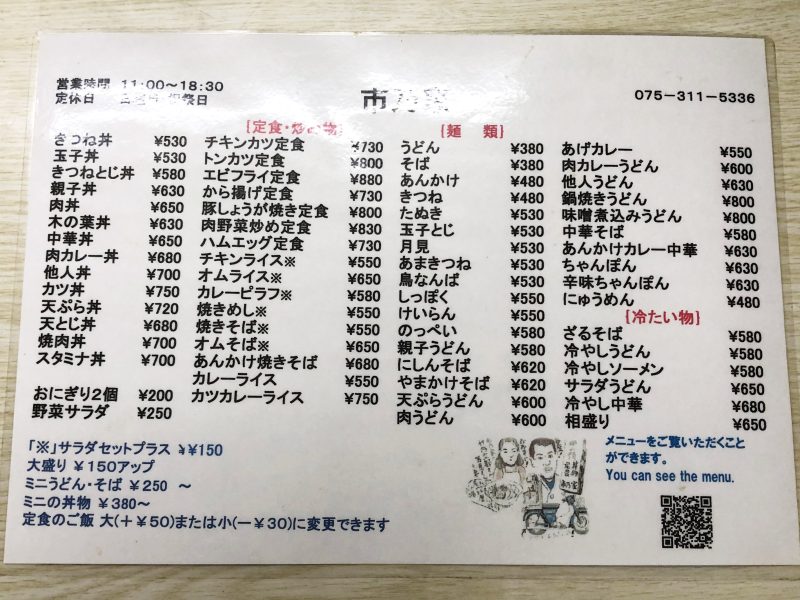 営業時間 11:00～18:30
定休日
祝祭日
市
075-311-5336
きつね丼 ¥530
玉子丼 ¥530
きつねとじ丼 ¥580
親子丼 ¥630
肉丼 ¥650
木の葉丼 ¥630
中華丼 ¥650
肉カレー丼 ¥680
他人丼 ¥700
カツ丼 ¥750
天ぷら丼 ¥720
天とじ丼 ¥680
焼肉丼 ¥700
スタミナ丼 ¥700
おにぎり2個 ¥200
野菜サラダ ¥250
[定食・炒め物]
チキンカツ定食 ¥730
トンカツ定食 ¥800
エビフライ定食 ¥880
から揚げ定食 ¥730
豚しょうが焼き定食 ¥800
肉野菜炒め定食 ¥830
ハムエッグ定食 ¥730
チキンライス※ ¥550
オムライス※ ¥650
カレーピラフ※ ¥580
焼きめし※ ¥550
焼きそば※ ¥550
オムそば※ ¥650
あんかけ焼きそば ¥680
カレーライス ¥550
カツカレーライス ¥750
[麺 類]
うどん ¥380
そば ¥380
あんかけ ¥480
きつね ¥480
たぬき ¥530
玉子とじ ¥530
月見 ¥530
あまきつね ¥530
鳥なんば ¥550
しっぽく ¥550
けいらん ¥550
のっぺい ¥580
親子うどん ¥580
にしんそば ¥620
やまかけそば ¥620
天ぷらうどん ¥600
肉うどん ¥600
あげカレー ¥550
肉カレーうどん ¥600
他人うどん ¥630
鍋焼きうどん ¥800
味噌煮込みうどん ¥800
中華そば ¥580
あんかけカレー中華 ¥630
ちゃんぽん ¥630
辛味ちゃんぽん ¥630
にゅうめん ¥480
[冷たい物]
ざるそば ¥580
冷やしうどん ¥580
冷やしソーメン ¥580
サラダうどん ¥650
冷やし中華 ¥680
相盛り ¥650
「※」サラダセットプラス ¥150
大盛り ¥150アップ
ミニうどん・そば ¥250 ～
ミニの丼物 ¥380～
定食のご飯 大(＋¥50)または小(ー¥30)に変更できます
メニューをご覧いただくこと
ができます。
You can see the menu.